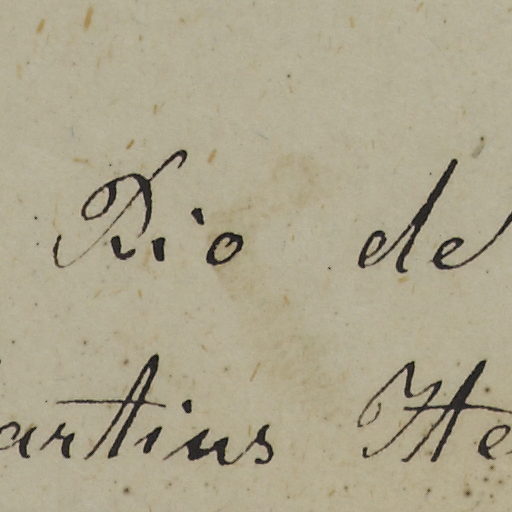 Rio de
artius He